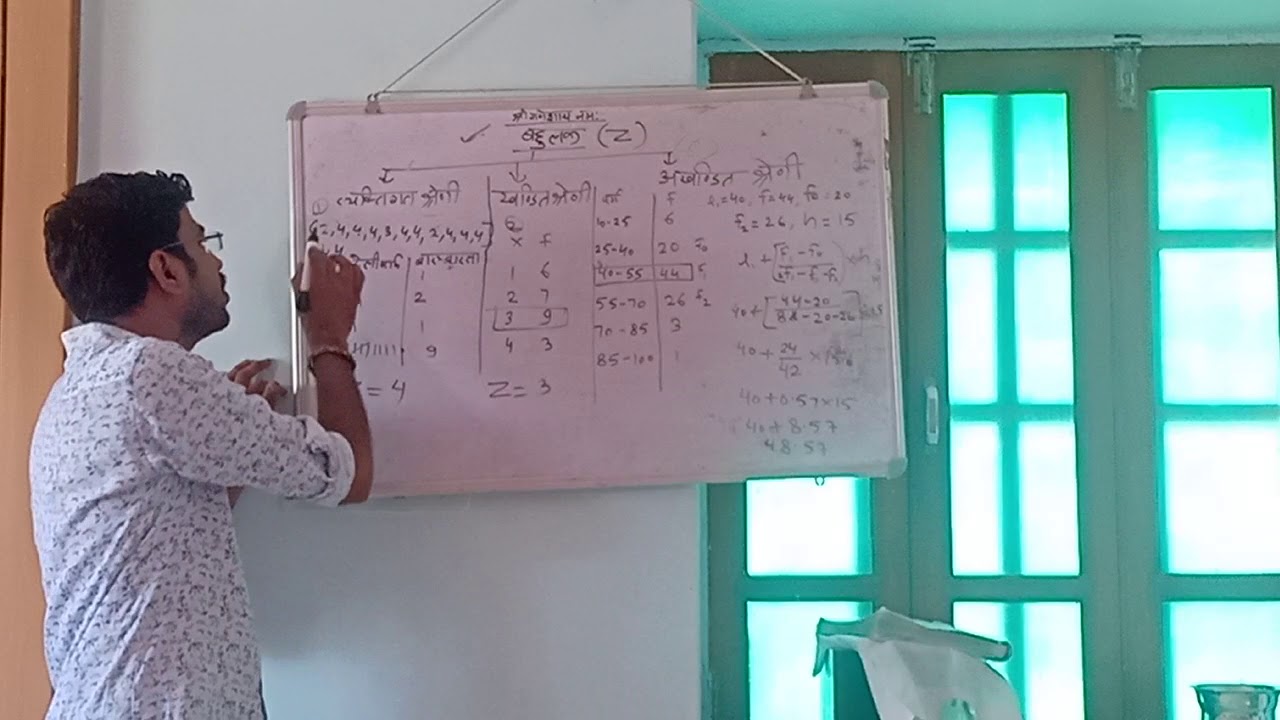 श्री गणेशाय नमः
✓ बहुलक (Z)
① व्यक्तिगत श्रेणी
2, 4, 4, 4, 3, 4, 4, 2, 4, 4, 4
4, 4
बारम्बारता
1
2
1
9
= 4
खण्डित श्रेणी
X f
1 6
2 7
3 9
4 3
Z = 3
अखण्डित श्रेणी
वर्ग f
10-25 6
25-40 20 f₀
40-55 44 f₁
55-70 26 f₂
70-85 3
85-100 1
l₁=40, f₁=44, f₀=20
f₂=26, h=15
40+[44-20/88-20-26]
40+24/42×15
40+0.57×15
40+8.57
48.57